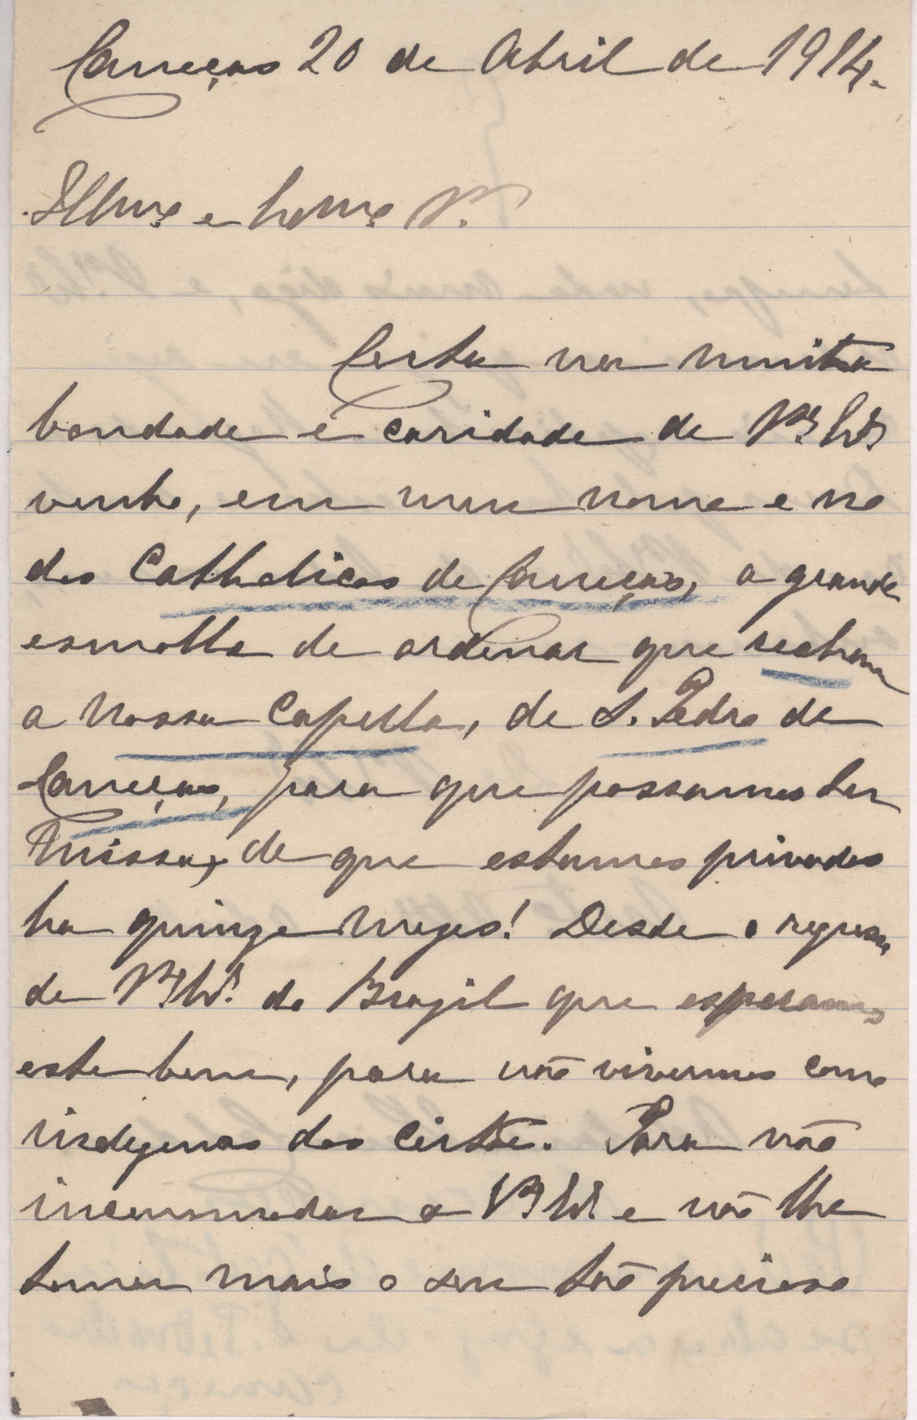 Canneças 20 de Abril de 1914.
Illmº e Exmº Sr.
Certa na muita
bondade e caridade de V. Ex.
venho, em meu nome e no
dos Catholicos de Canneças, a grande
esmolla de ordenar que se abra
a nossa Capella, de S. Pedro de
Canneças, para que possamos ter
Missa, de que estamos privados
ha quinze mezes! Desde o regresso
de V. Ex. do Brazil que esperamos
este bem, para não vivermos como
indigenas dos Certões. Para não
incommodar a V. Ex. e não lhe
tomar mais o seu tão precioso